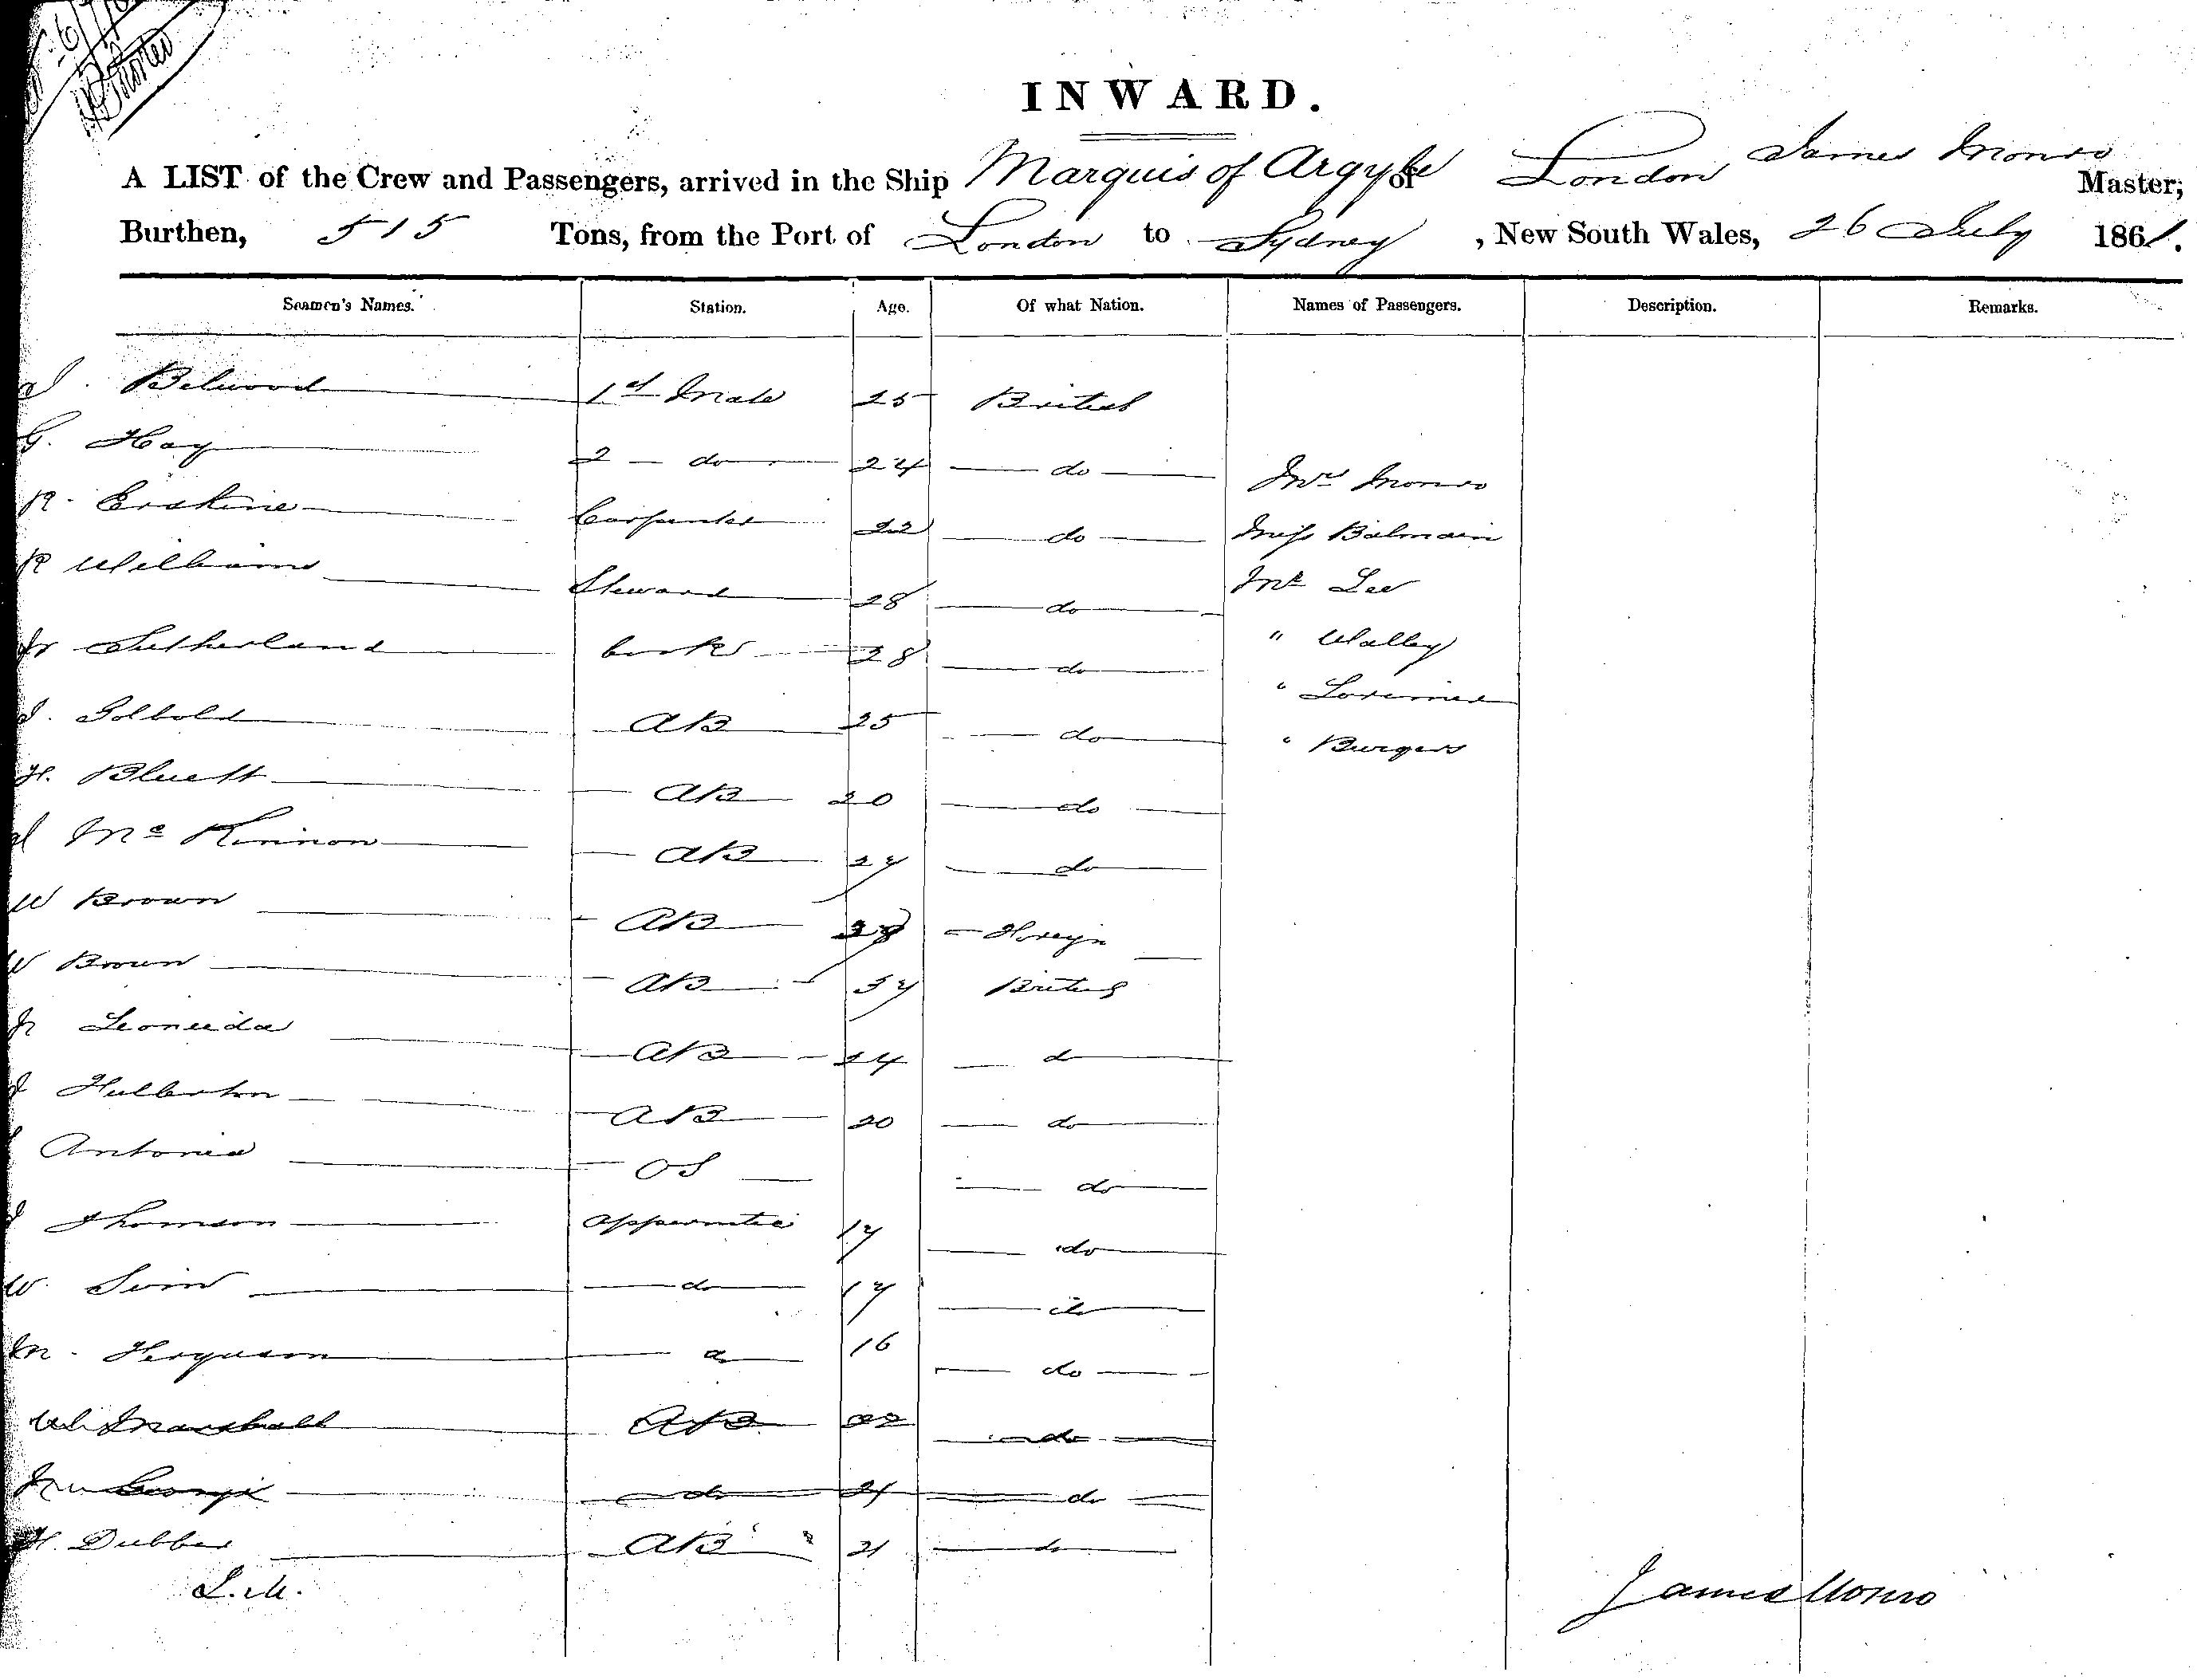 INWARD.
A LIST of the Crew and Passengers, arrived in the Ship Marquis of Argyle of London, James Monro Master,
Burthen, 515 Tons, from the Port of London to Sydney, New South Wales, 26 July 1861.
Seamen's Names. Station. Age. Of what Nation. Names of Passengers. Description. Remarks.
Belwood 1st Mate 25 British
G. Hay 2 do 24 do Mrs Monro
R. Erskine Carpenter 22 do Miss Balmain
R Williams Steward 28 do Mr Lee
Sutherland Cook 28 do " Walley
Godbold AB 25 do " Lorimer
H. Bluett AB 20 do " Burgess
Mc Kinnon AB 27 do
W Brown AB Foreign
W Brown AB 37 British
Leoneida AB 24 d
Fullerton AB 20 do
Antonia OS do
Thomson Apprentice 17 do
W. Sim do 17 do
M. Ferguson do 16 do
Wm Marshall AB 22 do
George do 21 do
H. Dubber AB 21 do
James Monro